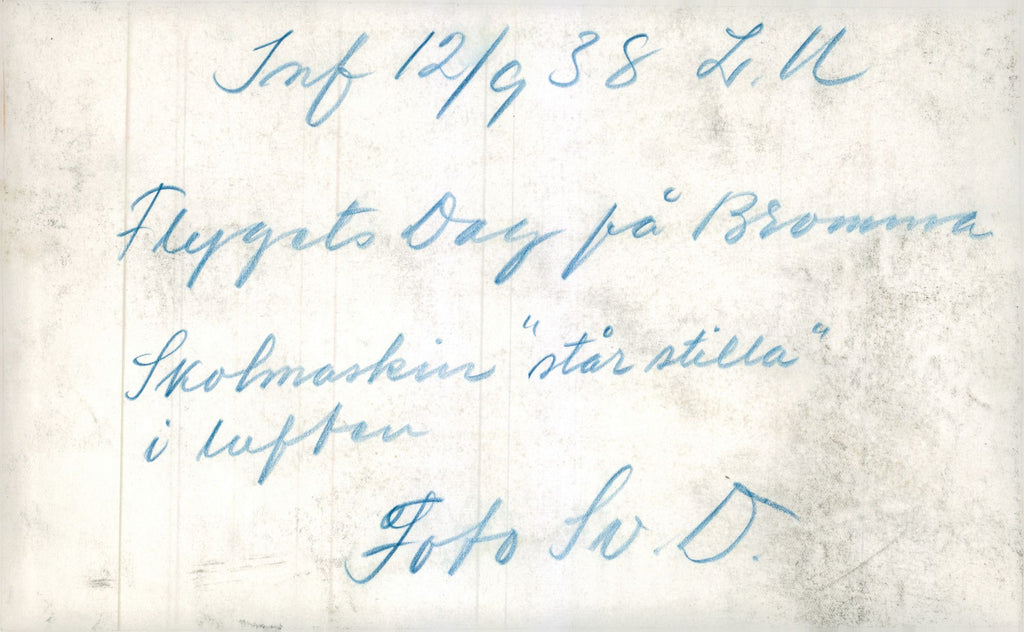 Inf 12/9 38 L. U
Flygets Dag på Bromma
Skolmaskin "står stilla"
i luften
Foto Sv. D.